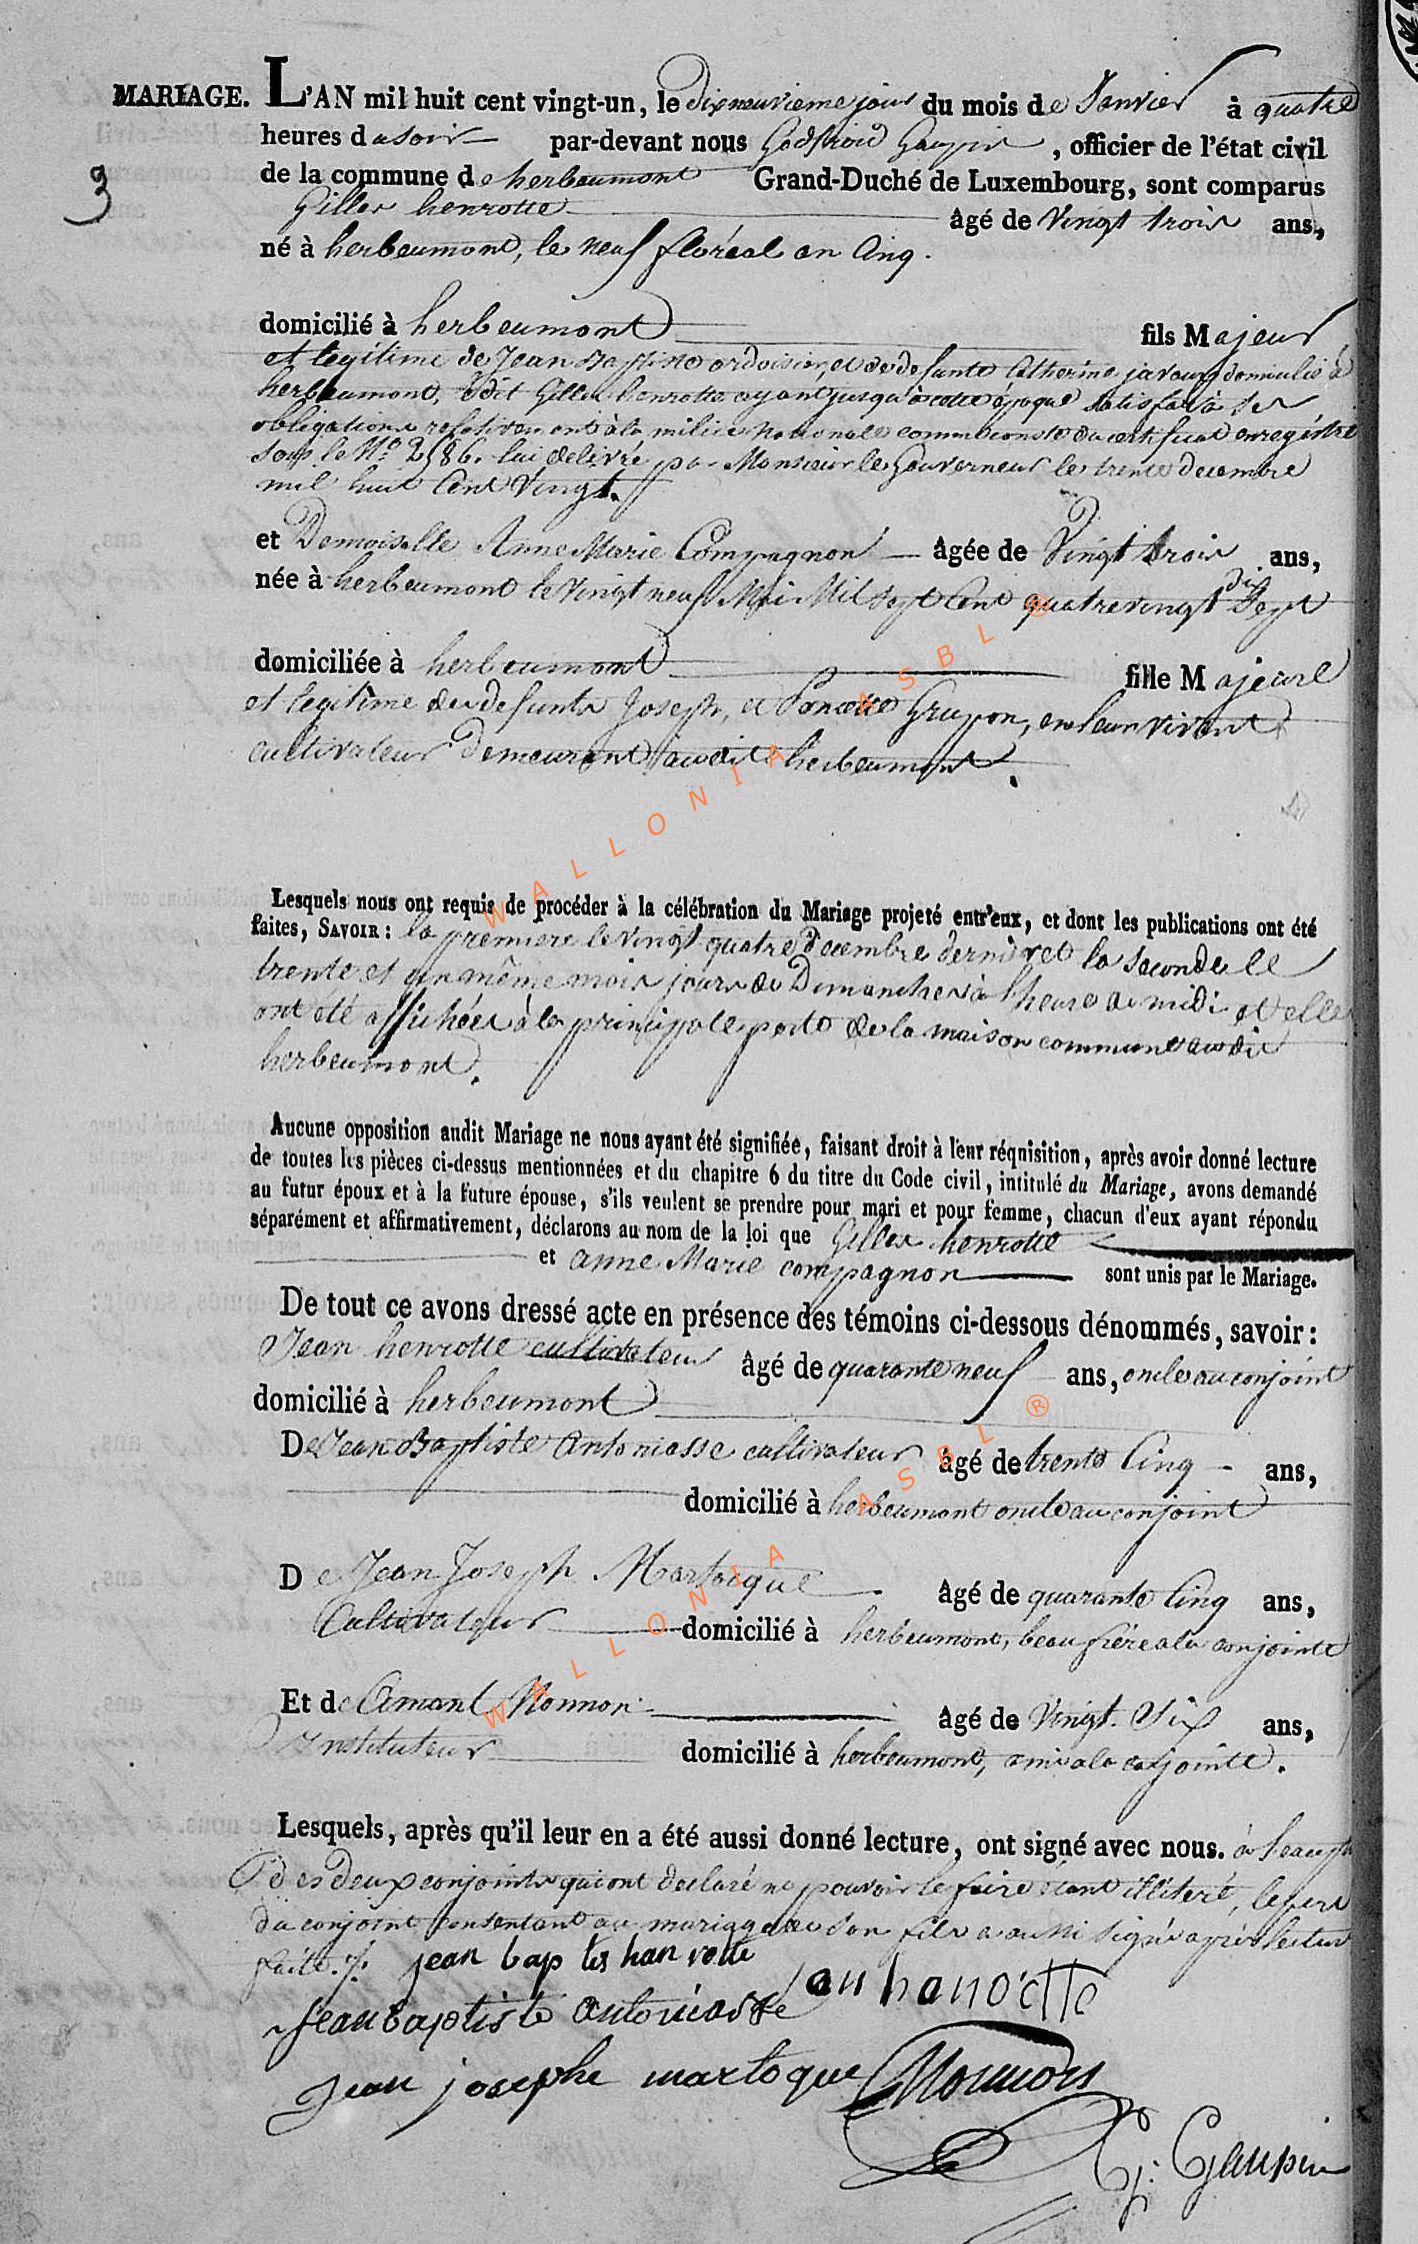 MARIAGE. L'AN mil huit cent vingt-un, le dixneuvieme jour du mois de Janvier à quatre
heures du soir par-devant nous Godfroid Gaupin, officier de l'état civil
3
de la commune de herbeumont Grand-Duché de Luxembourg, sont comparus
Gilles henrotte âgé de Vingt trois ans,
né à herbeumont, le neuf floréal an Cinq.
domicilié à herbeumont fils Majeur
et legitime de Jean Baptiste ardoisier, et de defunte Catherine domicilié à
herbeumont, ledit Gilles henrotte ayant jusqu'à cette époque satisfait à ses
obligations relativement à la milice nationale comme conste du certificat enregistré
sous le No. 2586. lui delivré par Monsieur le Gouverneur le trente decembre
mil huit Cent Vingt.
et Demoiselle Anne Marie Compagnon âgée de Vingt trois ans,
née à herbeumont le Vingt neuf Mai Mil Sept Cent quatrevingt dix Sept
domiciliée à herbeumont fille Majeure
et legitime des defunts Joseph, et Poncette Grupon, en leur vivant
cultivateur Demeurant audit herbeumont.
Lesquels nous ont requis de procéder à la célébration du Mariage projeté entr'eux, et dont les publications ont été
faites, SAVOIR : la premiere le vingt quatre Decembre dernier et la seconde le
trente et un même mois jours de Dimanches à l'heure de midi et elle
ont été affichées à la principale porte de la maison commune audit
herbeumont.
Aucune opposition audit Mariage ne nous ayant été signifiée, faisant droit à leur réquisition, après avoir donné lecture
de toutes les pièces ci-dessus mentionnées et du chapitre 6 du titre du Code civil, intitulé du Mariage, avons demandé
au futur époux et à la future épouse, s'ils veulent se prendre pour mari et pour femme, chacun d'eux ayant répondu
séparément et affirmativement, déclarons au nom de la loi que Gilles henrotte
et anne Marie compagnon sont unis par le Mariage.
De tout ce avons dressé acte en présence des témoins ci-dessous dénommés, savoir :
Jean henrotte cultivateur âgé de quarante neuf ans, oncle au conjoint
domicilié à herbeumont
De Jean Baptiste Antoniasse cultivateur âgé de trente Cinq ans,
domicilié à herbeumont oncle au conjoint
De Jean Joseph Martoque âgé de quarante Cinq ans,
Cultivateur domicilié à herbeumont, beau frère a la conjointe
Et de Amant Monnon âgé de Vingt Six ans,
Instituteur domicilié à herbeumont, ami a la conjointe.
Lesquels, après qu'il leur en a été aussi donné lecture, ont signé avec nous.
des deux conjoints qui ont declaré ne pouvoir le faire étant illiteré, le pere
du conjoint consentant au mariage de son fils a aussi signé après lecture
faite. jean baptis han rotte
jan hanoette
Jean baptiste antoniasse
jean josephe martoque Monnon
G: Gaupin
WALLONIA ASBL ®
WALLONIA ASBL ®